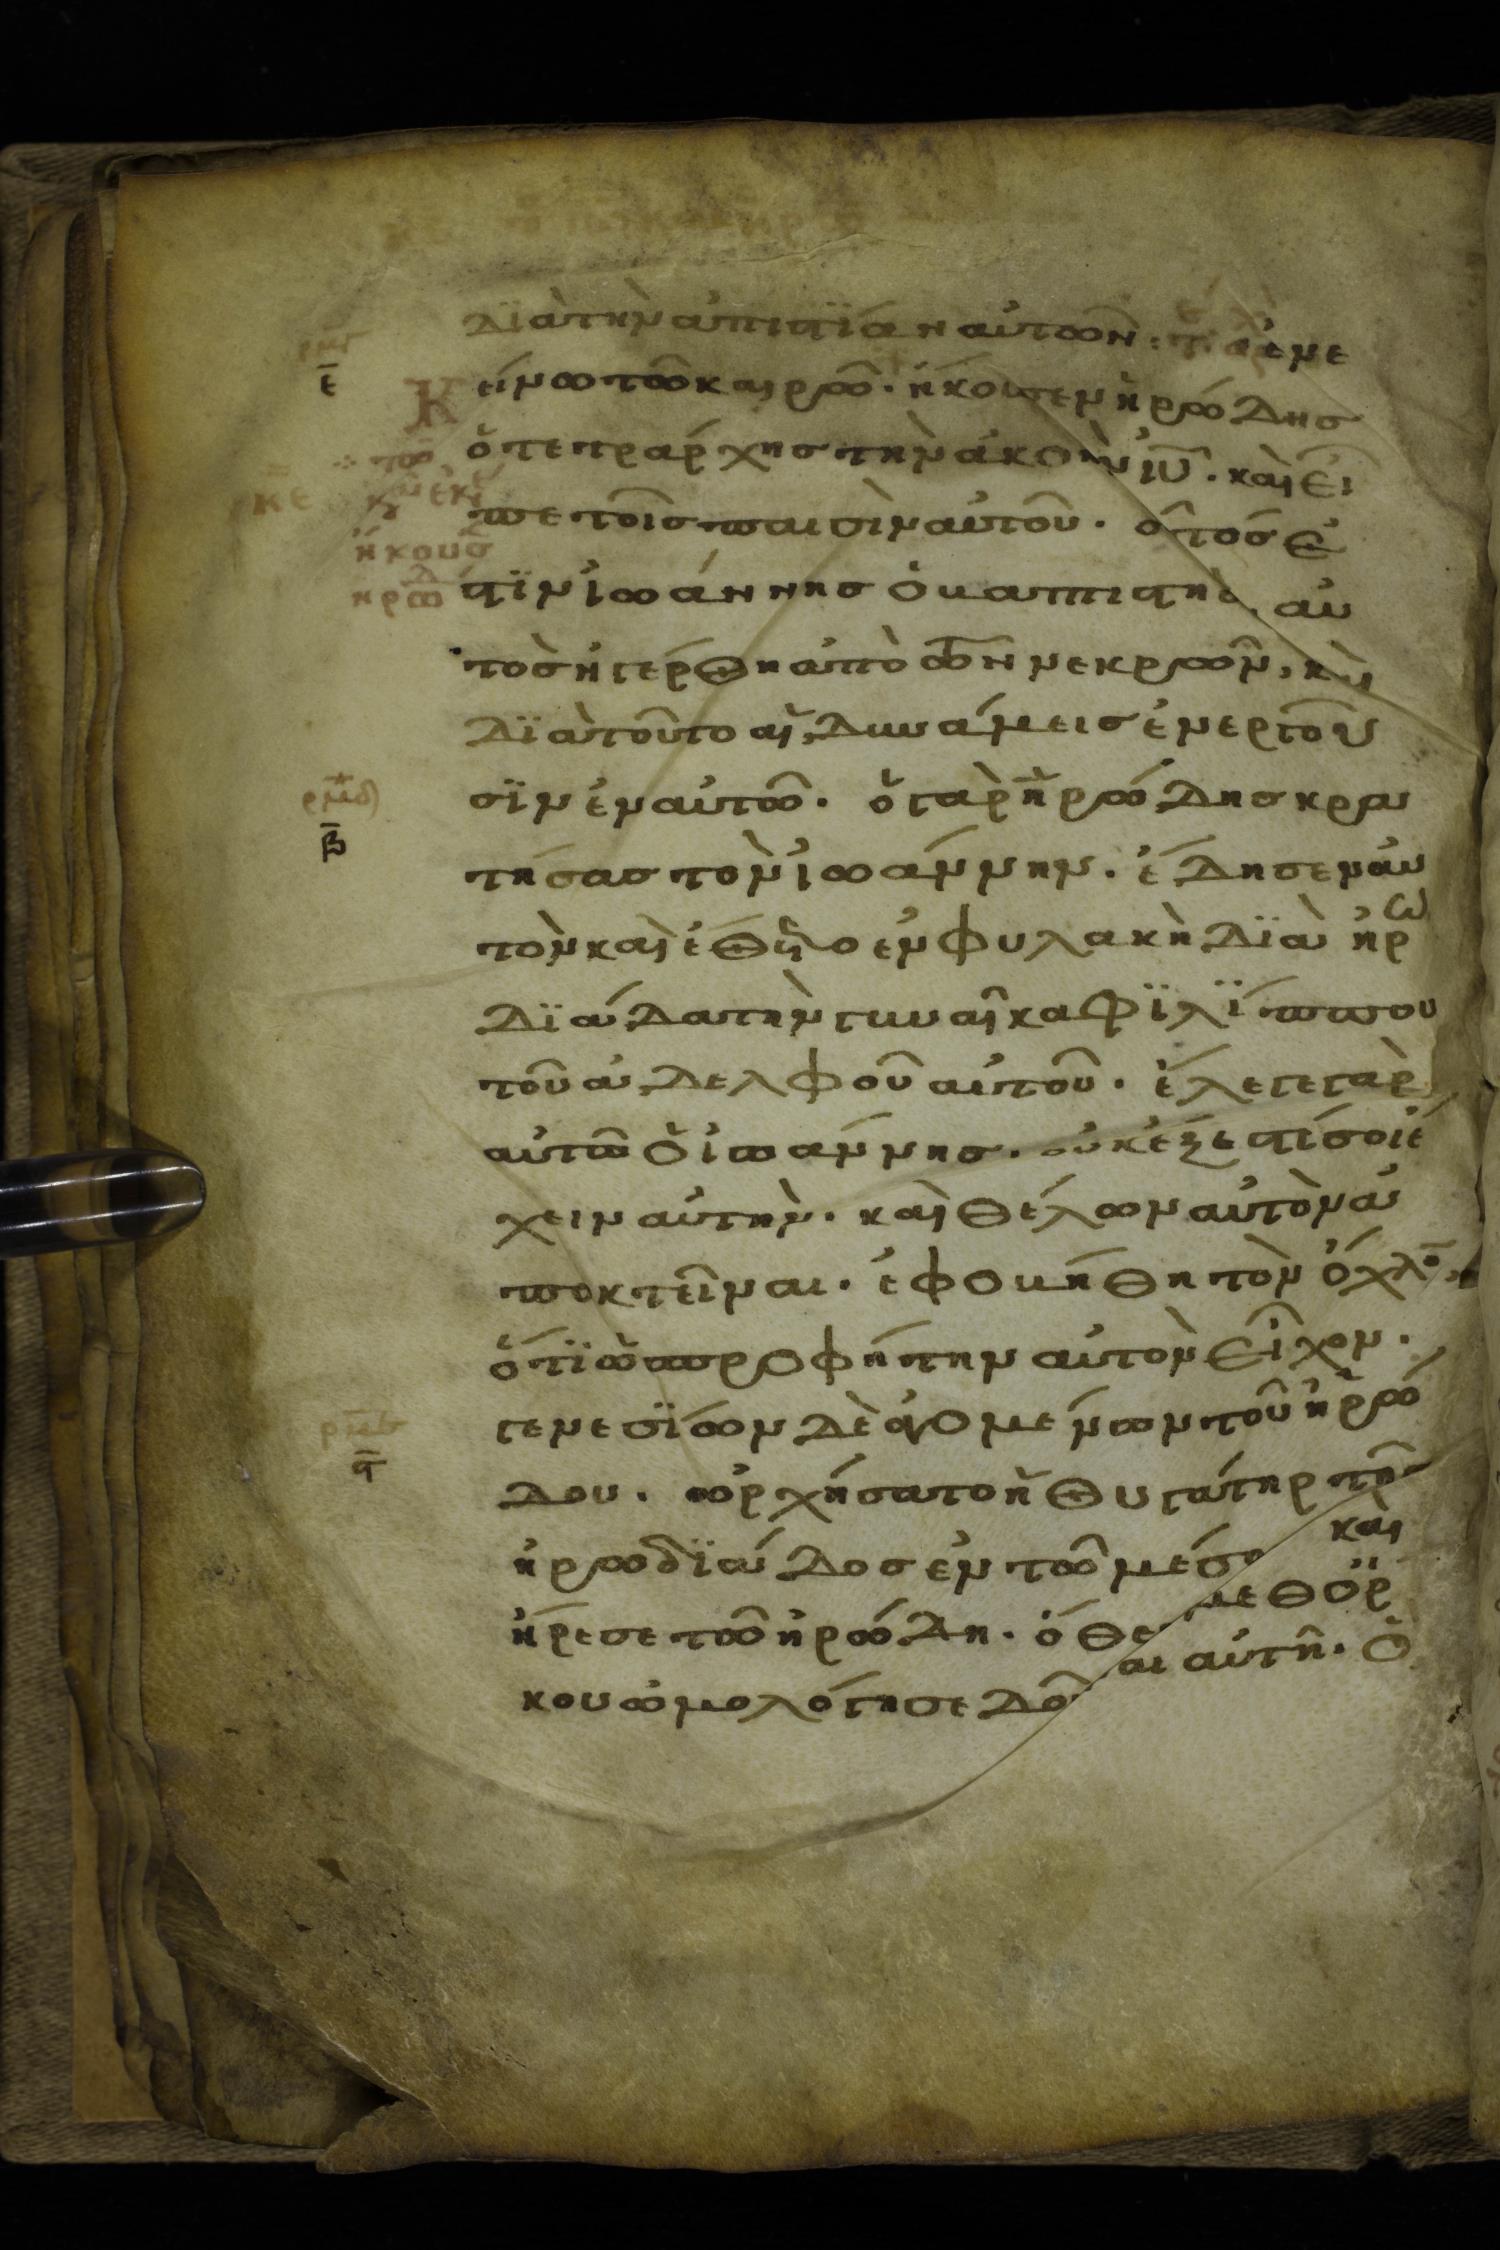 διὰ τὴν ἀπιστΐαν αὐτῶν: ἐμε
είνω τῶ καιρῶ. ἤκουσεν ἡρώδησ
ὁ τετραρχησ τὴν ἀκοὴν ἰυ̅. καὶ εἶ
πε τοῖσ παισὶν αὐτοῦ. οὗτόσ ἐ
στϊν ἰωάννησ ὁ βαπτιστὴσ, αυ
τὸσ ἠγέρθη ἀπὸ τῶν νεκρῶν, καὶ
δϊὰ τοῦτο αἱ δυνάμεισ ἐνεργοῦ
σϊν ἐν αὐτῶ. ὁ γὰρ ἡρώδησ κρα
τήσασ τὸν ἰωάννην. ἔδησεν αὐ
τὸν καὶ ἔθετο ἐν φυλακὴ δϊὰ ἡρω
δϊάδα τὴν γυναῖκα φϊλΐππου
τοῦ ἀδελφοῦ αὐτοῦ. ἔλεγε γὰρ
αὐτῶ ὁ ἰωάννησ. οὐκ ἔξεστί σοι ἔ
χειν αὐτὴν. καὶ θέλων αὐτὸν ἀ
ποκτεῖναι. ἐφοβήθη τὸν ὄχλο̅,
ὅτϊ ὡσ προφήτην αὐτὸν εἶχον.
γενεσΐων δὲ ἀγομένων τοῦ ἡρώ
δου. ὠρχήσατο ἡ θυγάτηρ τῆσ
ἡρωδϊάδοσ ἐν τῶ μέσω καὶ
ἤρεσε τῶ ἡρώδη. ὅθεν μεθ ὅρ
κου ὡμολόγησε δοῦναι αὐτῆ. ὃ
ε̅
Κ
κ̅ε
ἤκουσ
ηρωδ
β̅